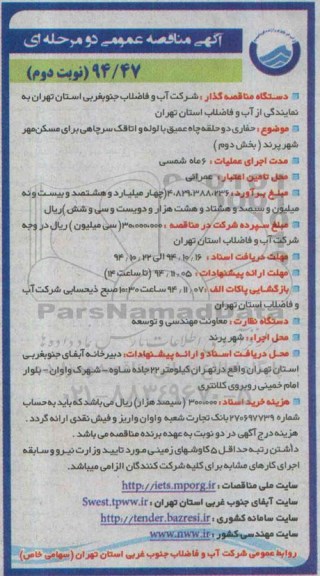 آگهی مناقصه عمومی دو مرحله ای
۹۴/۴۷ (نوبت دوم)
دستگاه مناقصه گذار : شرکت آب و فاضلاب جنوبغربی استان تهران به
نمایندگی از آب و فاضلاب استان تهران
موضوع : حفاری دو حلقه چاه عمیق با لوله و اتاقک سرچاهی برای مسکن مهر
شهر پرند ( بخش دوم )
مدت اجرای عملیات : ۶ ماه شمسی
محل تامین اعتبار : عمرانی
مبلغ برآورد : (چهار میلیارد و هشتصد و بیست و نه
میلیون و سیصد و هشتاد و هشت هزار و دویست و سی و شش) ریال
مبلغ سپرده شرکت در مناقصه : ۳۰،۰۰۰،۰۰۰ (سی میلیون ) ریال در وجه
شرکت آب و فاضلاب استان تهران
مهلت دریافت اسناد : ۹۴,۱۰,۱۶ الی ۹۴,۱۰,۲۲
مهلت ارائه پیشنهادات : ۹۴,۱۱,۰۵ (تا ساعت ۱۴)
بازگشایی پاکات الف : ۹۴,۱۱,۰۷ ساعت ۱۰:۳۰ صبح ذیحسابی شرکت آب
و فاضلاب استان تهران
دستگاه نظارت : معاونت مهندسی و توسعه
محل اجراء : شهر پرند
محل دریافت اسناد و ارائه پیشنهادات : دبیرخانه آبفای جنوبغربی
استان تهران واقع در تهران کیلومتر ۲۲ جاده ساوه - شهرک واوان - بلوار
امام خمینی روبروی کلانتری
هزینه خرید اسناد : ۳۰۰،۰۰۰ (سیصد هزار) ریال می باشد که باید به حساب
شماره ۲۷۰۶۹۷۷۳۹ بانک تجارت شعبه واوان واریز و فیش نقدی ارائه گردد .
هزینه درج آگهی در دو نوبت به عهده برنده مناقصه می باشد .
داشتن رتبه حداقل ۵ کاوشهای زمینی مورد تایید وزارت نیرو و سابقه
اجرای کار های مشابه برای کلیه شرکت کنندگان الزامی میباشد.
سایت ملی مناقصات : http://iets.mporg.ir
سایت آبفای جنوب غربی استان تهران : Swest.tpww.ir
سایت سامانه کشوری : http://tender.bazresi.ir
سایت مهندسی کشور : www.nww.ir
روابط عمومی شرکت آب و فاضلاب جنوب غربی استان تهران (سهامی خاص)